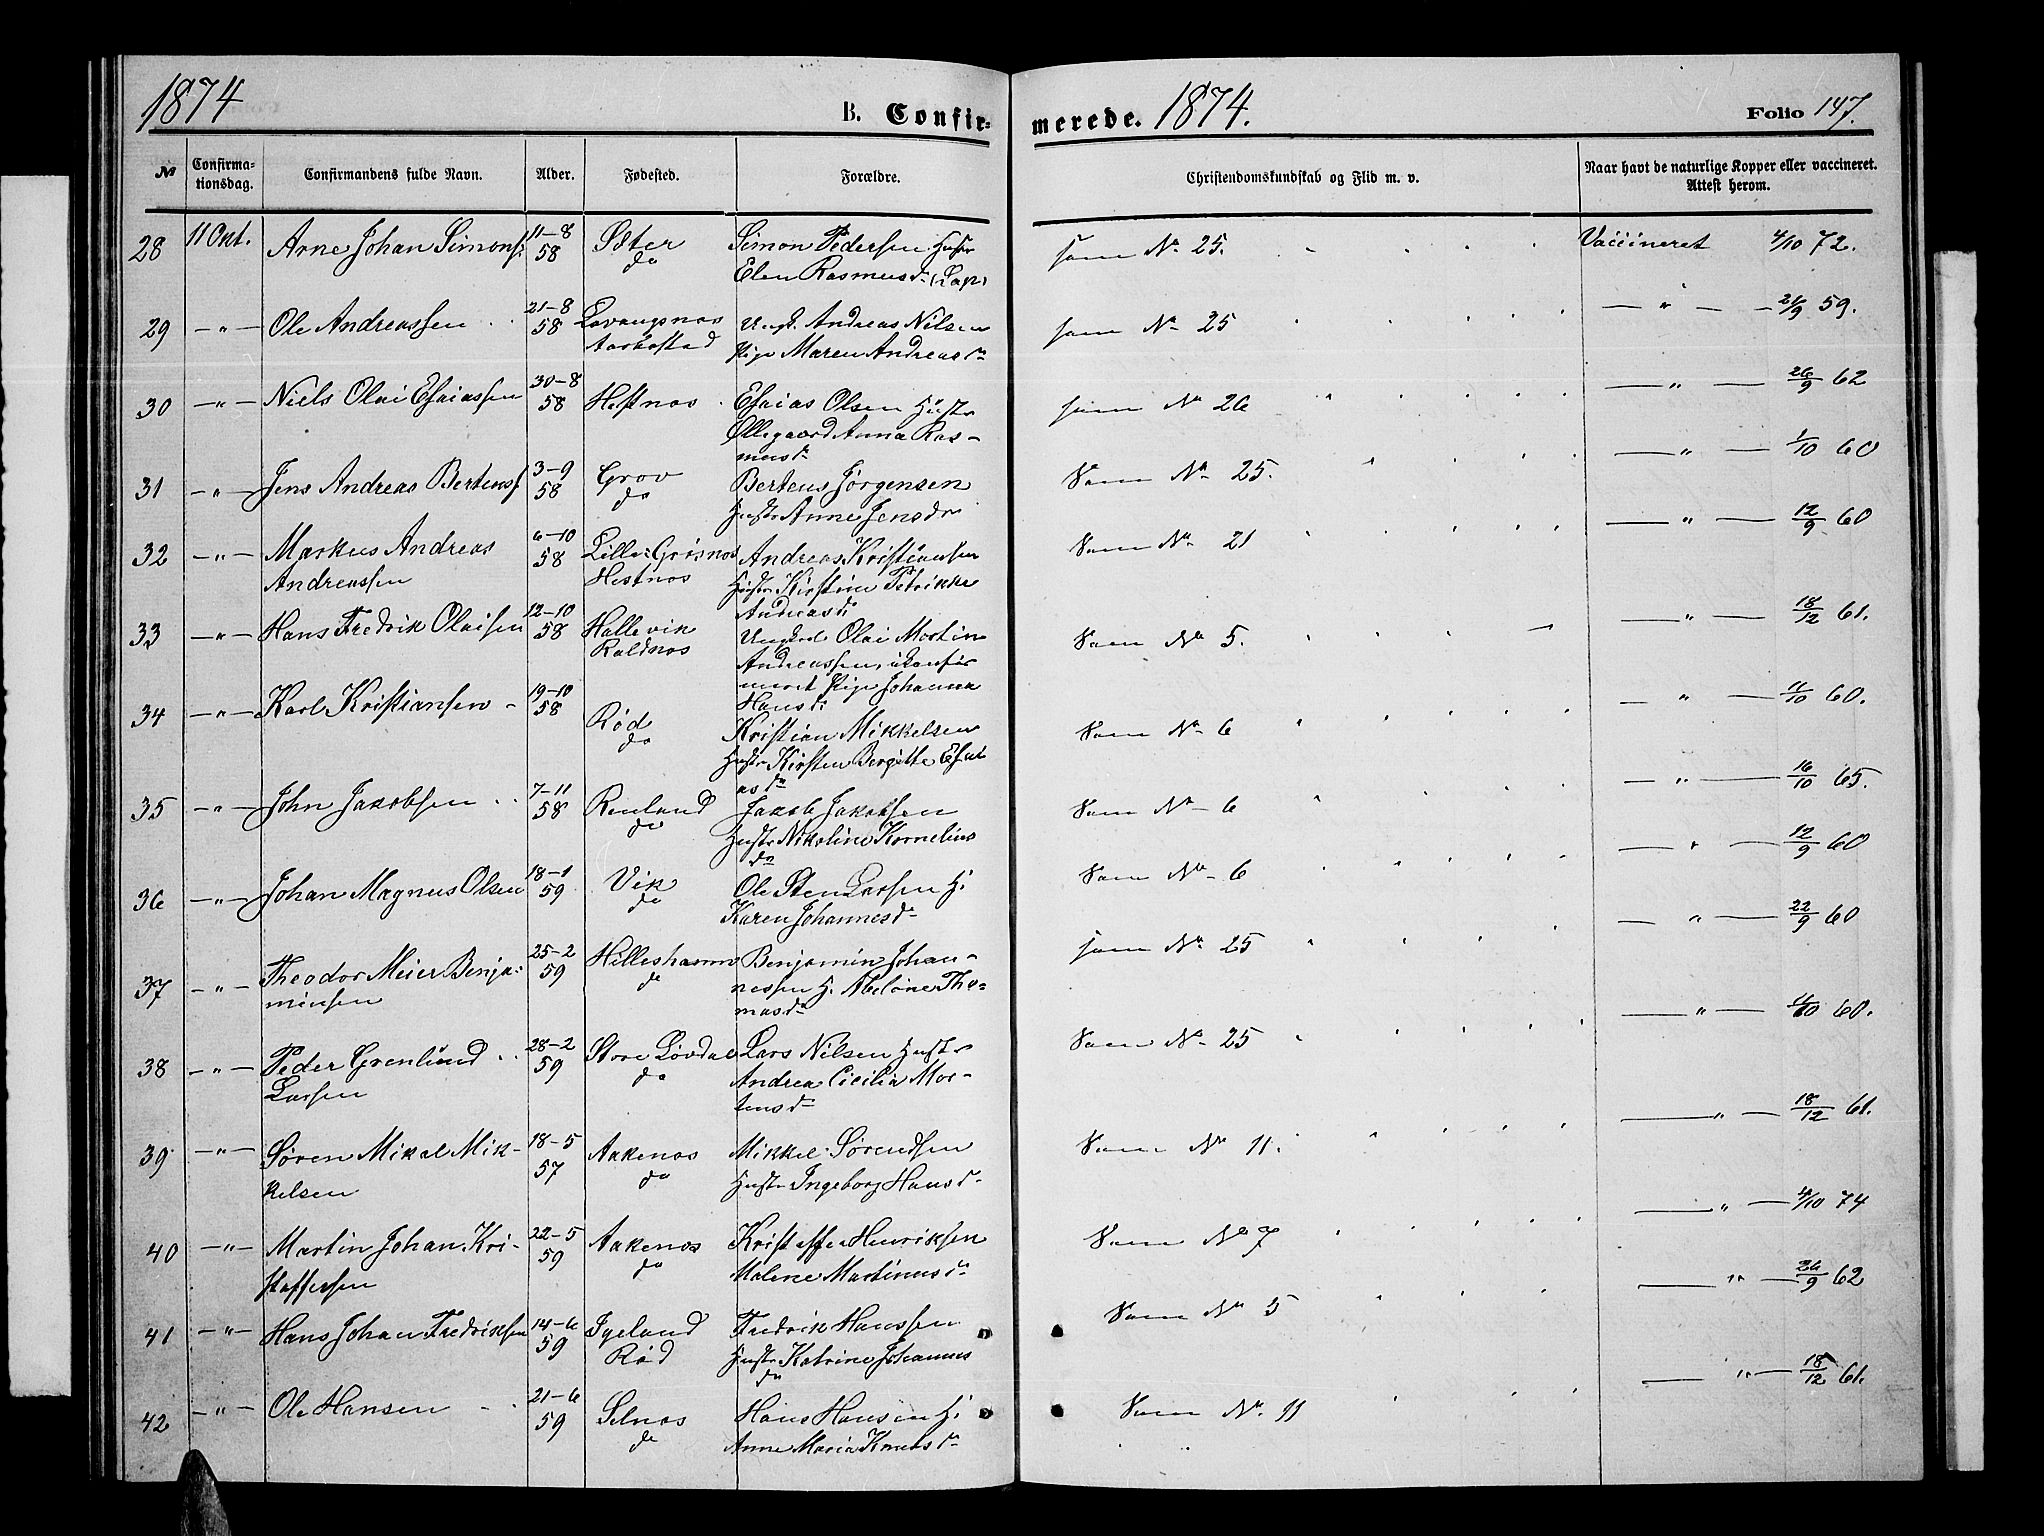 1874
B. Confir-
merede. 1874.
Folio 147.
№
Confirma-
tionsdag.
Confirmandens fulde Navn.
Alder.
Fødested.
Forældre.
Christendomskundskab og Flid m. v.
Naar havt de naturlige Kopper eller vaccineret.
Attest herom.
28 11 Okt. Arne Johan Simons. 11-8 58 Sæter do Simon Pedersen Hustr
Elen Rasmusdr (Lap) som No 25. Vaccineret 4/10 72.
29 -"- Ole Andreassen 21-8 58 Lavangsnæs Ungk. Andreas Nilsen
Aarbostad Pige Maren Andreasdr som No 25 -"- 21/9 59.
30 -"- Niels Olai Esaiassen 30-8 58 Hestnæs Esaias Olsen Hustr
Ollegaard Anna Ras-
musdr som No 26 -"- 26/9 62
31 -"- Jens Andreas Bertens. 3-9 58 Grov do Berteus Jørgensen
Hustr Anne Jensdr Som No 25. -"- 1/10 60
32 -"- Markus Andreas
Andreassen 6-10 58 Lille Grisnæs
Hestnæs Andreas Kristiansen
Hustr Kirstine Petrikke
Andreasdr Som No 21 -"- 12/9 60
33 -"- Hans Fredrik Olaisen 12-10 58 Hallevik
Roldnæs Ungkrl Olai Martin
Andreassen, ukonfir
meret Pige Johanna
Hansdr Som No 5. -"- 18/12 61.
34 -"- Karl Kristiansen 19-10 58 Rød do Kristian Mikkelsen
Hustr Kirsten Bergitte Esai
asdr Som No 6 -"- 11/10 60.
35 -"- John Jakobsen 7-11 58 Renland do Jakob Jakobsen
Hustr Nikoline Kornelius
dr Som No 6 -"- 16/10 65.
36 -"- Johan Magnus Olsen 18-1 59 Vik do Ole Sten Larsen H.
Karen Johannesdr Som No 6 -"- 12/9 60
37 -"- Theodor Meier Benja-
minsen 25-2 59 Hilleshamn do Benjamin Johan-
nessen H. Abelone Tho-
masdr som No 25 -"- 22/9 60
38 -"- Peder Grenlund
Larsen 28-2 59 Store Løvdal do Lars Nilsen Hustr
Andrea Cicilia Mor-
tensdr Som No 25 -"- 11/10 60.
39 -"- Søren Mikal Mik-
kelsen 18-5 57 Aakenæs do Mikkel Sørensen
Hustr Ingeborg Hansdr Som No 11. -"- 18/12 61.
40 -"- Martin Johan Kri-
stoffersen 22-5 59 Aakenæs do Kristoffer Henriksen
Malene Martinusdr Som No 7 -"- 4/10 74
41 -"- Hans Johan Fredriksen 14-6 59 Igeland
Rød Fredrik Hanssen
Hustr Katrine Johannes
dr Som No 5 -"- 26/9 62
42 -"- Ole Hansen 21-6 59 Selnæs do Hans Hansen H.
Anne Maria Knudsdr Som No 11 -"- 18/12 61.